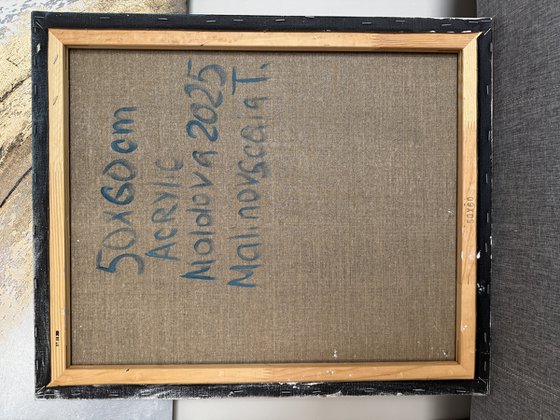 50x60cm
Acrylic
Moldova 2025
Malinovscaia T.
50X60